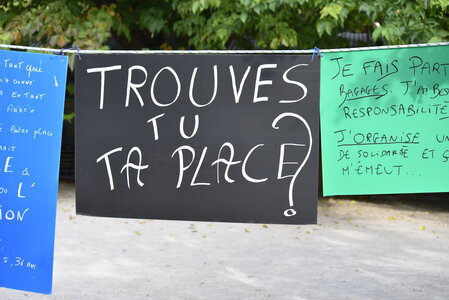 TANT QUE
M'A DONNÉ
EN TANT
PLACE
L'
ION
S, 36 ANS
TROUVES
TU
TA PLACE ?
JE FAIS PART
BAGAGES. J'AI BES
RESPONSABILITÉ
J'ORGANISE UN
DE SOLIDARITÉ ET Ç
M'ÉMEUT...